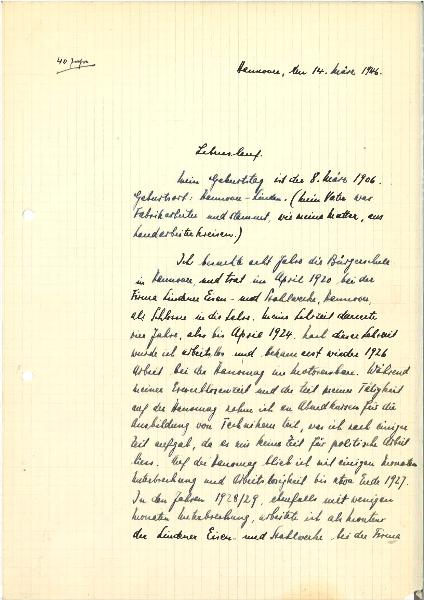 40 Jahre
Hannover, den 14. März 1946.
Lebenslauf.
Mein Geburtstag ist der 8. März 1906.
Geburtsort: Hannover-Linden. (Mein Vater war
Fabrikarbeiter und stammt, wie meine Mutter, aus
Landarbeiterkreisen.)
Ich besuchte acht Jahre die Bürgerschule
in Hannover, und trat im April 1920 bei der
Firma Lindener Eisen- und Stahlwerke, Hannover,
als Schlosser in die Lehre. Meine Lehrzeit dauerte
vier Jahre, also bis April 1924. Nach dieser Lehrzeit
wurde ich arbeitslos und bekam erst wieder 1926
Arbeit bei der Hanomag im Motorenbau. Während
meiner Erwerbslosenzeit und der Zeit meiner Tätigkeit
auf der Hanomag nahm ich an Abendkursen für die
Ausbildung von Technikern teil, was ich nach einiger
Zeit aufgab, da es mir keine Zeit für politische Arbeit
liess. Auf der Hanomag blieb ich mit einigen Monaten
Unterbrechung und Arbeitslosigkeit bis etwa Ende 1927.
In den Jahren 1928/29, ebenfalls mit wenigen
Monaten Unterbrechung, arbeitete ich als Monteur
der Lindener Eisen- und Stahlwerke bei der Firma